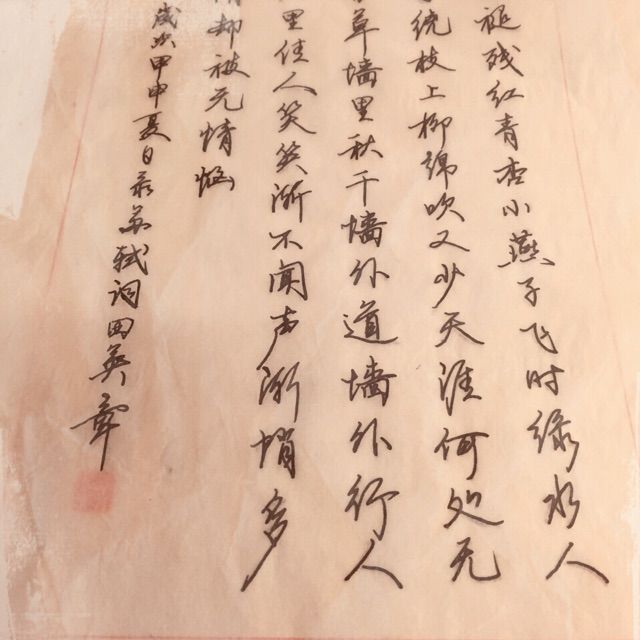 褪残红青杏小燕子飞时绿水人
绕枝上柳绵吹又少天涯何处无
草墙里秋千墙外道墙外行人
里佳人笑笑渐不闻声渐悄多
情却被无情恼
岁次甲申夏日录苏轼词田英章